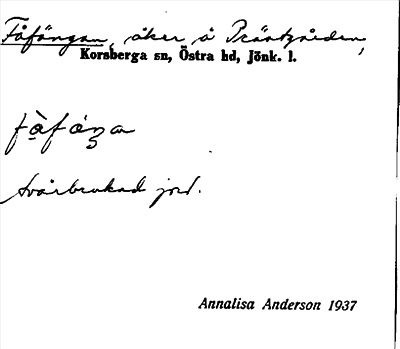 Fåfängan, åker å Prästgården,
Korsberga sn, Östra hd, Jönk. l.
svårbrukad jord.
Annalisa Anderson 1937